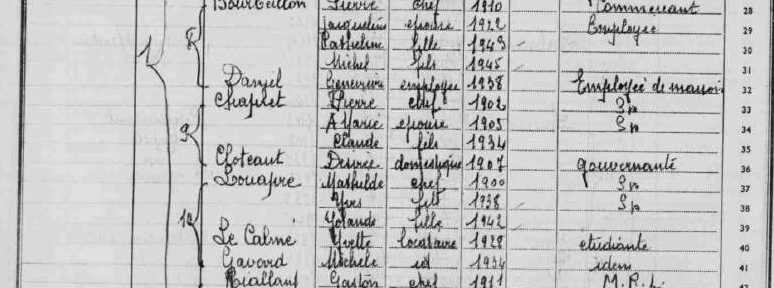 Pierre chef 1910 Commerçant 28
8 Jacqueline epouse 1922 Employée 29
Catheline fille 1943 30
Michel fils 1945 31
Danjel Genevieve employee 1938 Employée de maison 32
Chapret Pierre chef 1902 Sp 33
9 A Marie epouse 1905 Sp 34
1 Claude fils 1934 35
Choteaut Desirée domestique 1907 gouvernante 36
Louapre Mathilde chef 1900 Sp 37
Yves fils 1938 Sp 38
10 Yolande fille 1942 39
Le Calmé Yvette locataire 1928 etudiante 40
Gavard Michele id 1934 idem 41
Riallant Gaston chef 1911